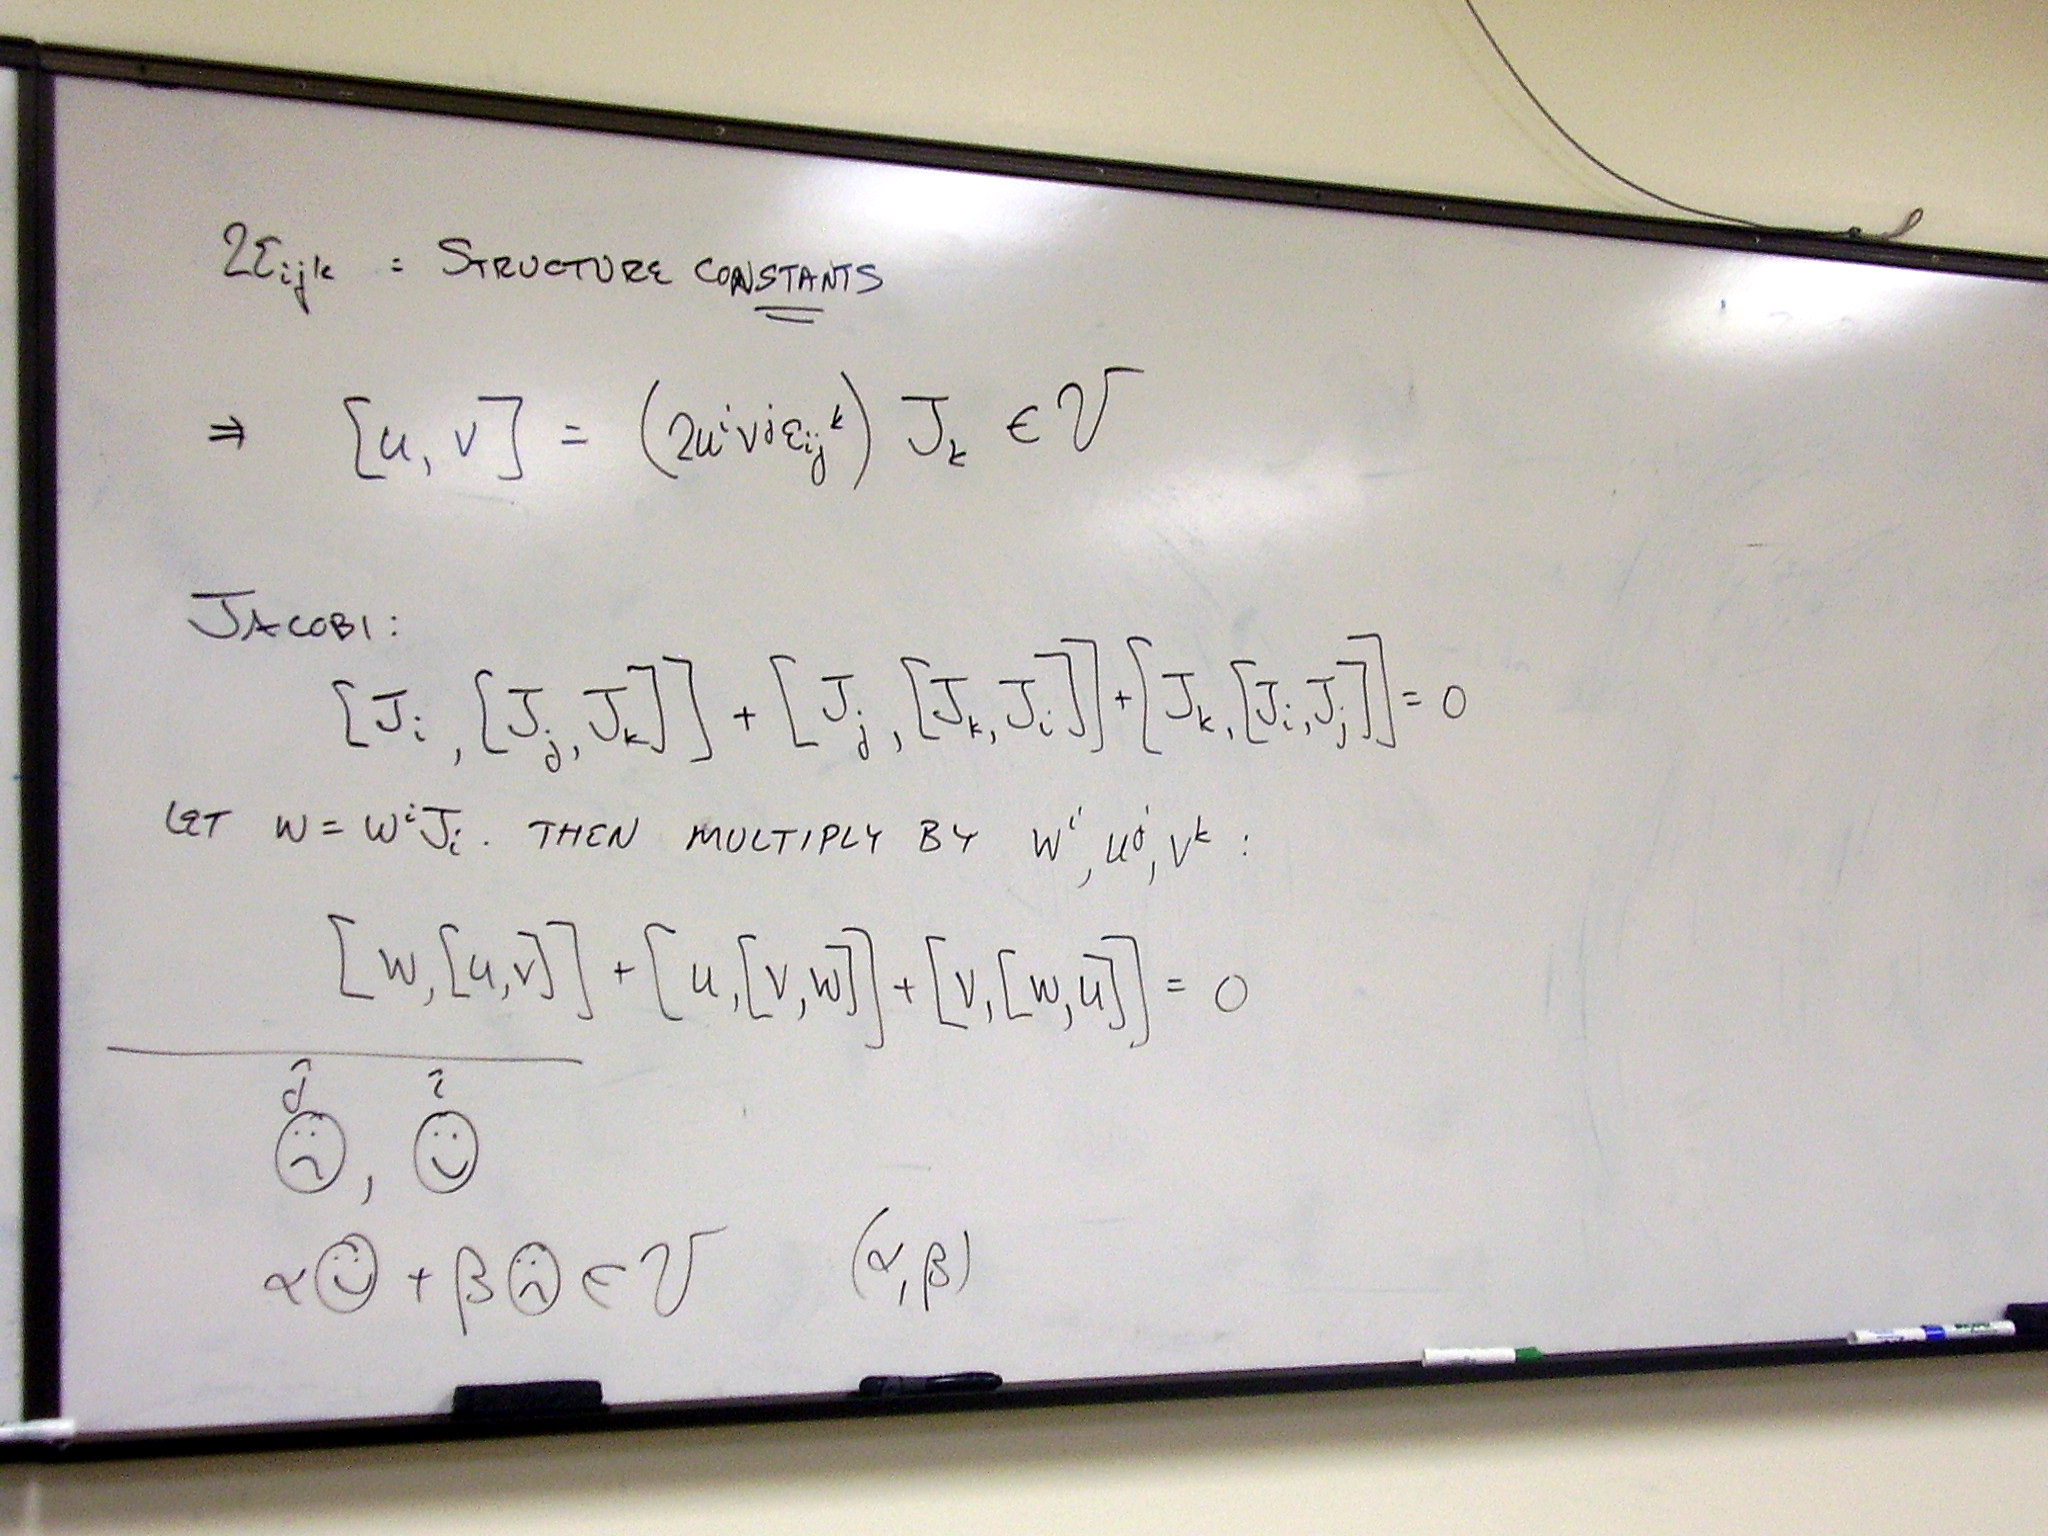 2εijk = STRUCTURE CONSTANTS
⇒ [u, v] = (2uⁱvʲεijᵏ) Jk ∈ V
JACOBI:
[Ji, [Jj, Jk]] + [Jj, [Jk, Ji]] + [Jk, [Ji, Jj]] = 0
LET w = wⁱJi. THEN MULTIPLY BY wⁱ, uʲ, vᵏ :
[w, [u, v]] + [u, [v, w]] + [v, [w, u]] = 0
ĵ î
☹, ☺
α☺ + β☹ ∈ V (α, β)